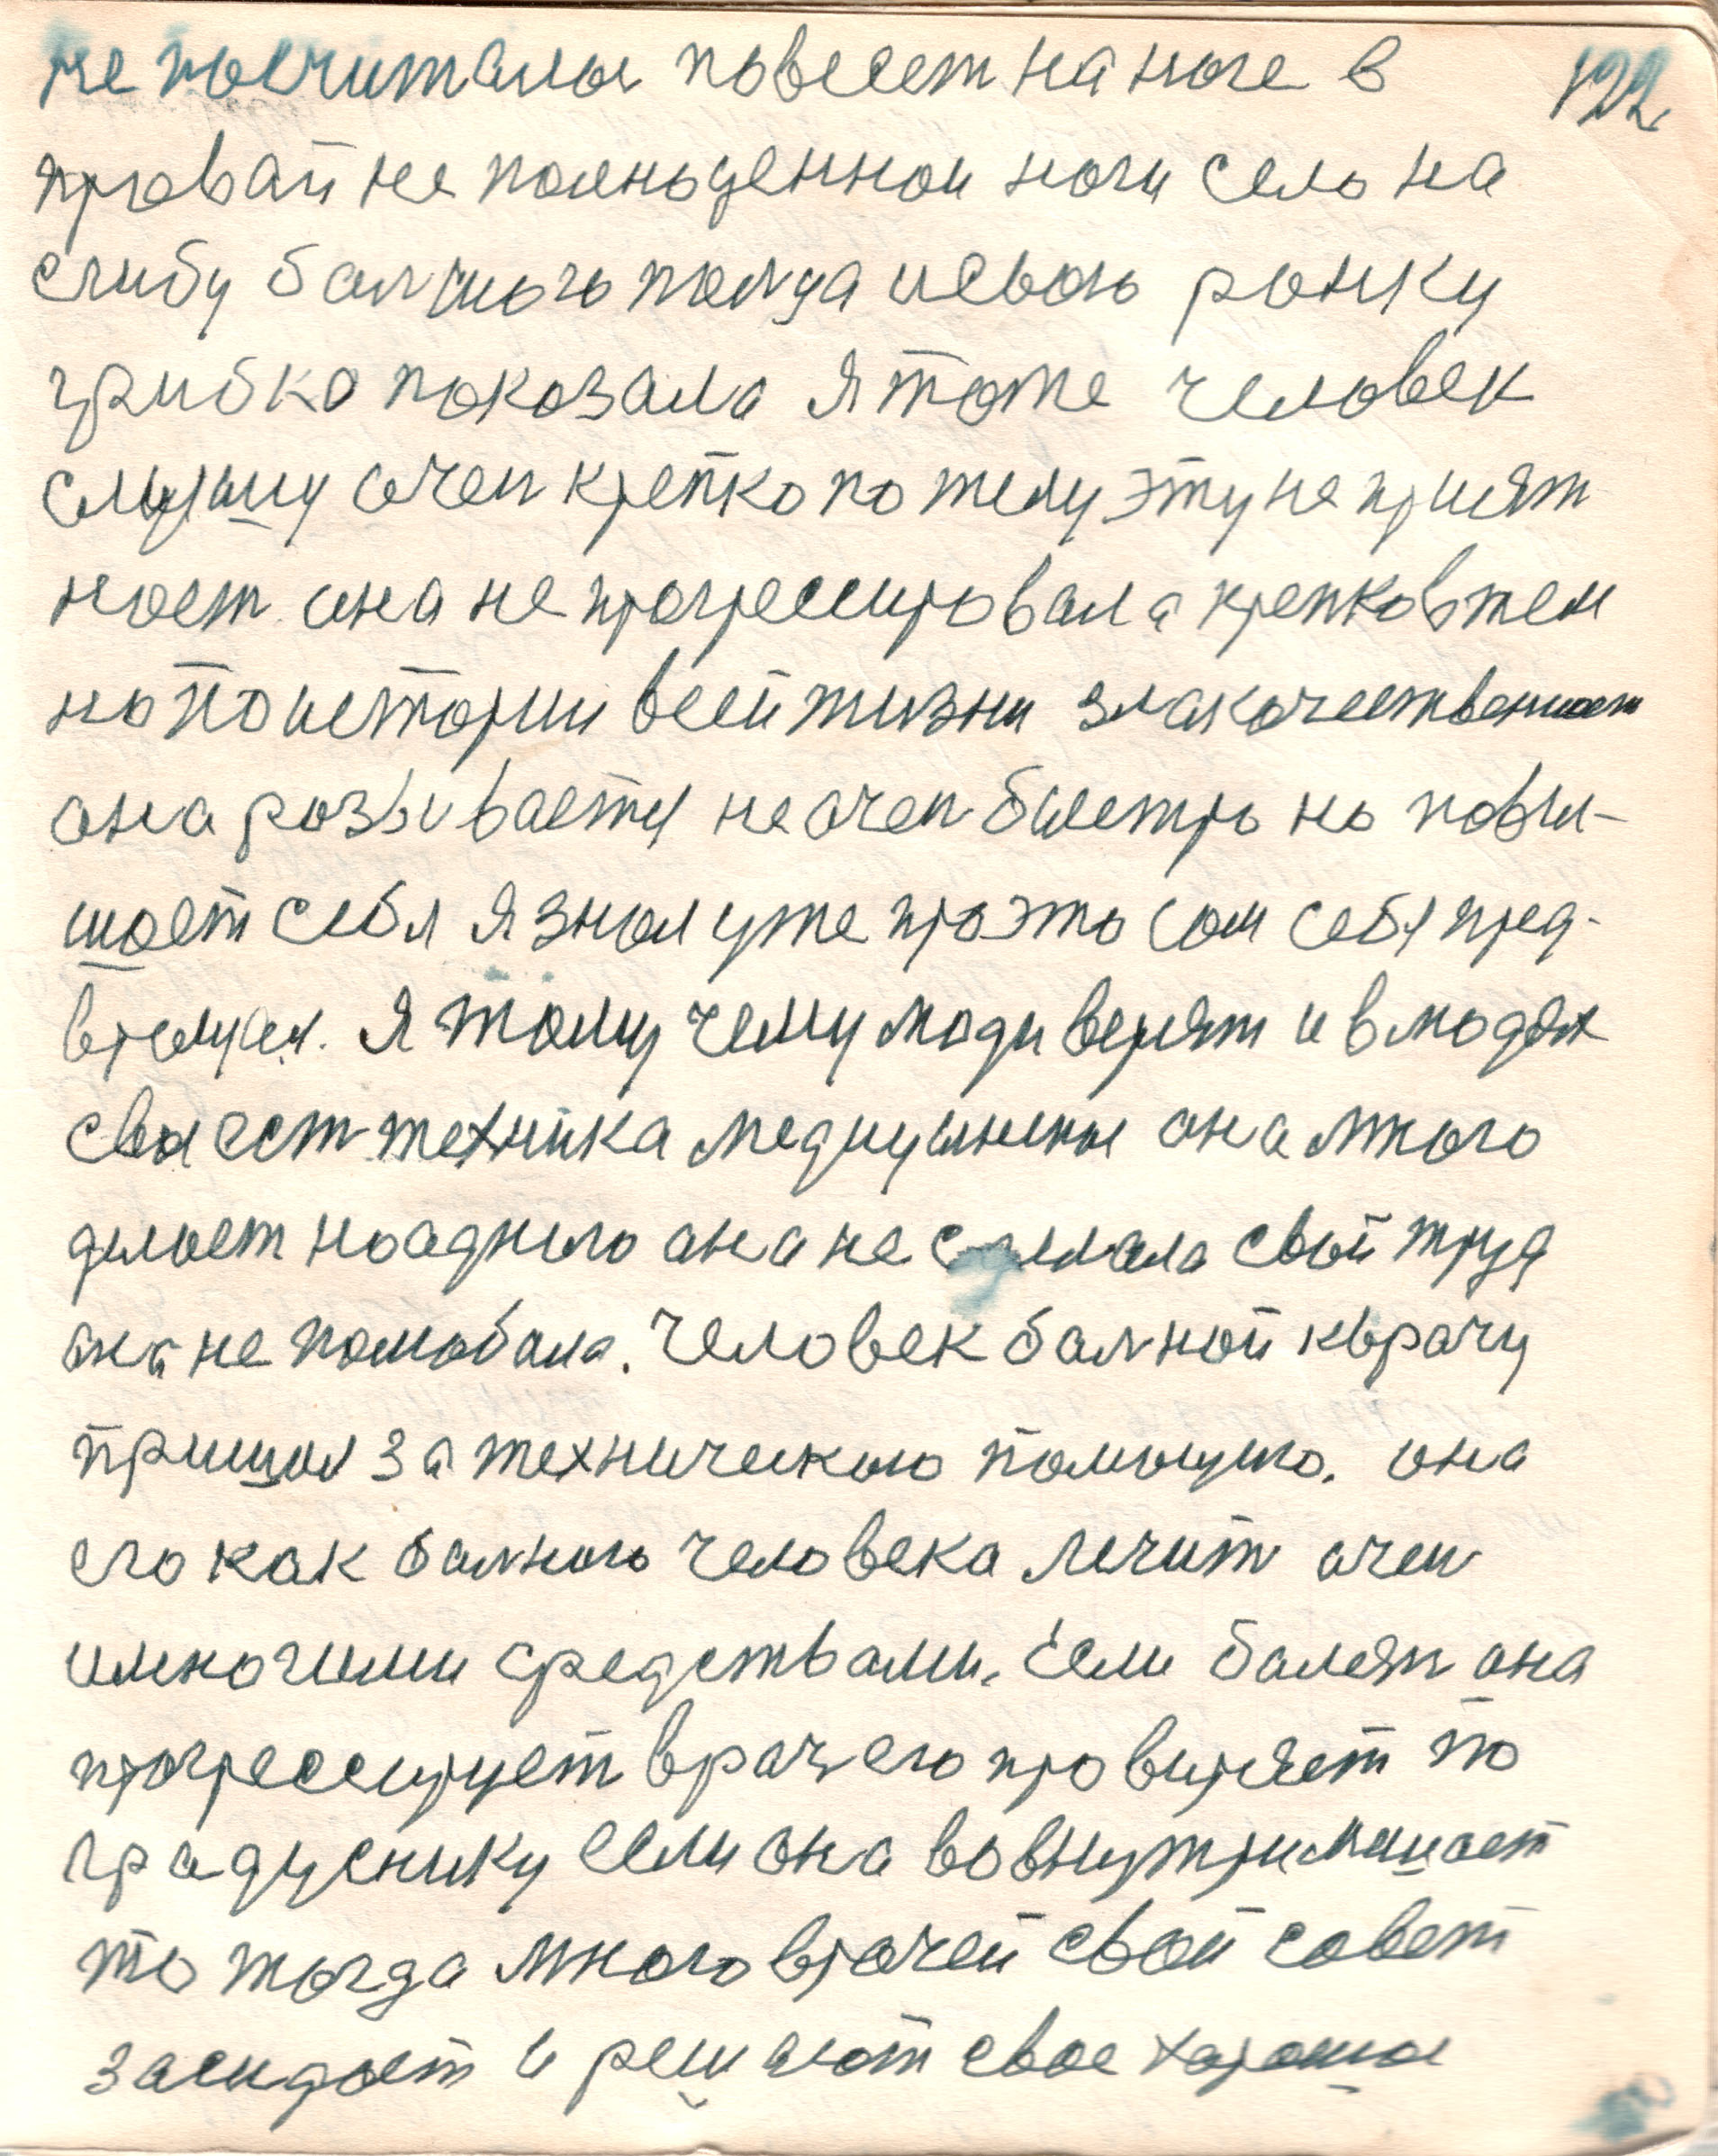 не посчиталос повесет на ноге в 122
правай не полноценной ноги село на
сгибу балчшого палца и свою ронку
грибко показала я тоже человек
слышу очен крепко по телу эту не прият
ност. она не прогрессировала крепко в тели
но по истории всей жизни злакочественност
она розвивается не очен быстро но повы-
шает себя я знал уже про это сом себя пред-
 Я тому чему люди верят и в людях
своя ест техника медицынския она много
делает но аднаго она не сделала свой труд
она не 
 Человек балной к врачу
пришол за техническою помощью. она
его как балного человека лечит очен
и многими средствами. Если 
 она
прогрессирует врач его провиряет по
градуснику если она вовнутри мешает
то тогда много врачей свой совет
засидает и решают свое хорошое